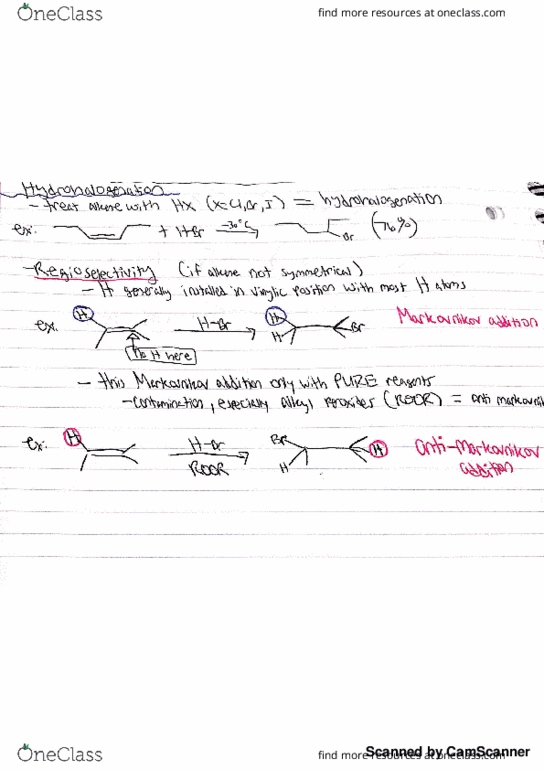 OneClass
find more resources at oneclass.com
Hydrohalogenation
- treat alkene with HX (X=Cl, Br, I) = hydrohalogenation
ex: + HBr -30°C Br (76%)
- Regioselectivity (if alkene not symmetrical)
- H generally installed in vinylic position with most H atoms
ex. H H-Br H H Br Markovnikov addition
no H here
- this Markovnikov addition only with PURE reagents
- contamination, especially alkyl peroxides (ROOR) = anti markovni
ex: H H-Br ROOR BR H H anti-Markovnikov
addition
OneClass
find more resources at oneclass.com
Scanned by CamScanner